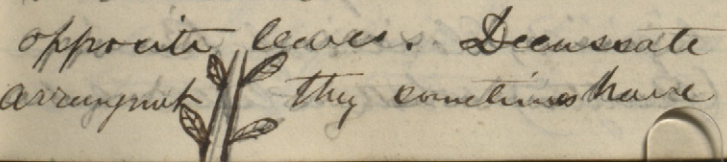 opposite leaves. Decussate
arrangment they sometimes have